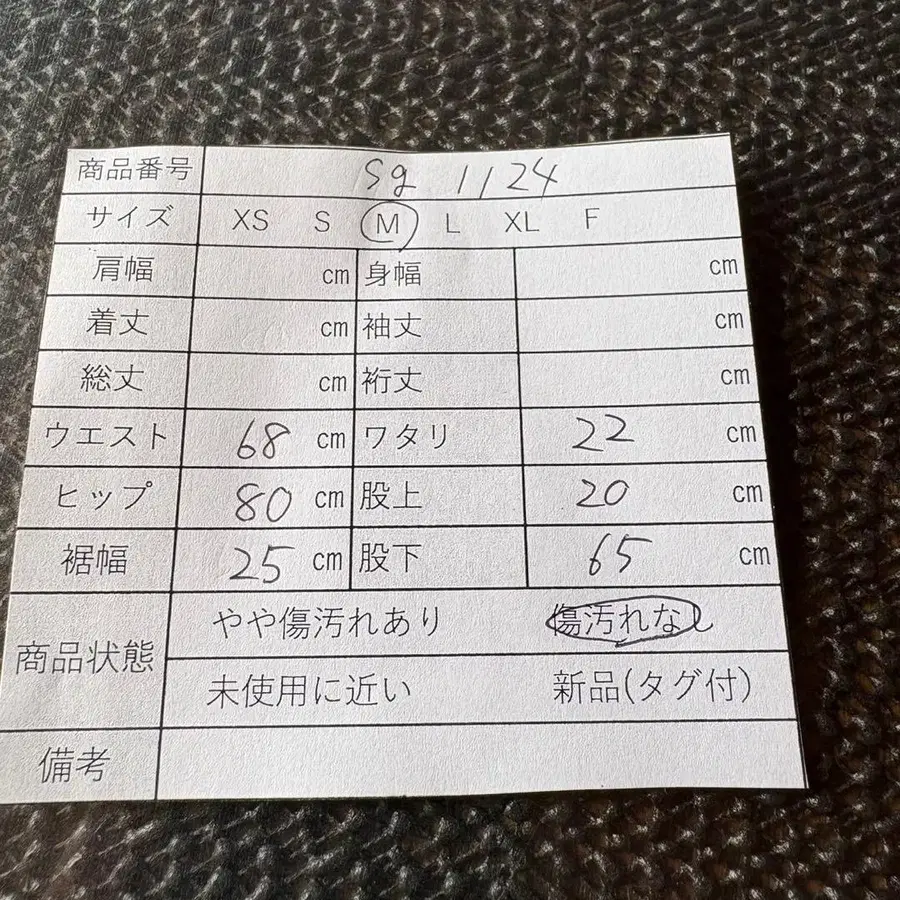 商品番号 Sg 1124
サイズ XS S M L XL F
肩幅 cm 身幅 cm
着丈 cm 袖丈 cm
総丈 cm 裄丈 cm
ウエスト 68 cm ワタリ 22 cm
ヒップ 80 cm 股上 20 cm
裾幅 25 cm 股下 65 cm
商品状態 やや傷汚れあり 傷汚れなし
未使用に近い 新品(タグ付)
備考